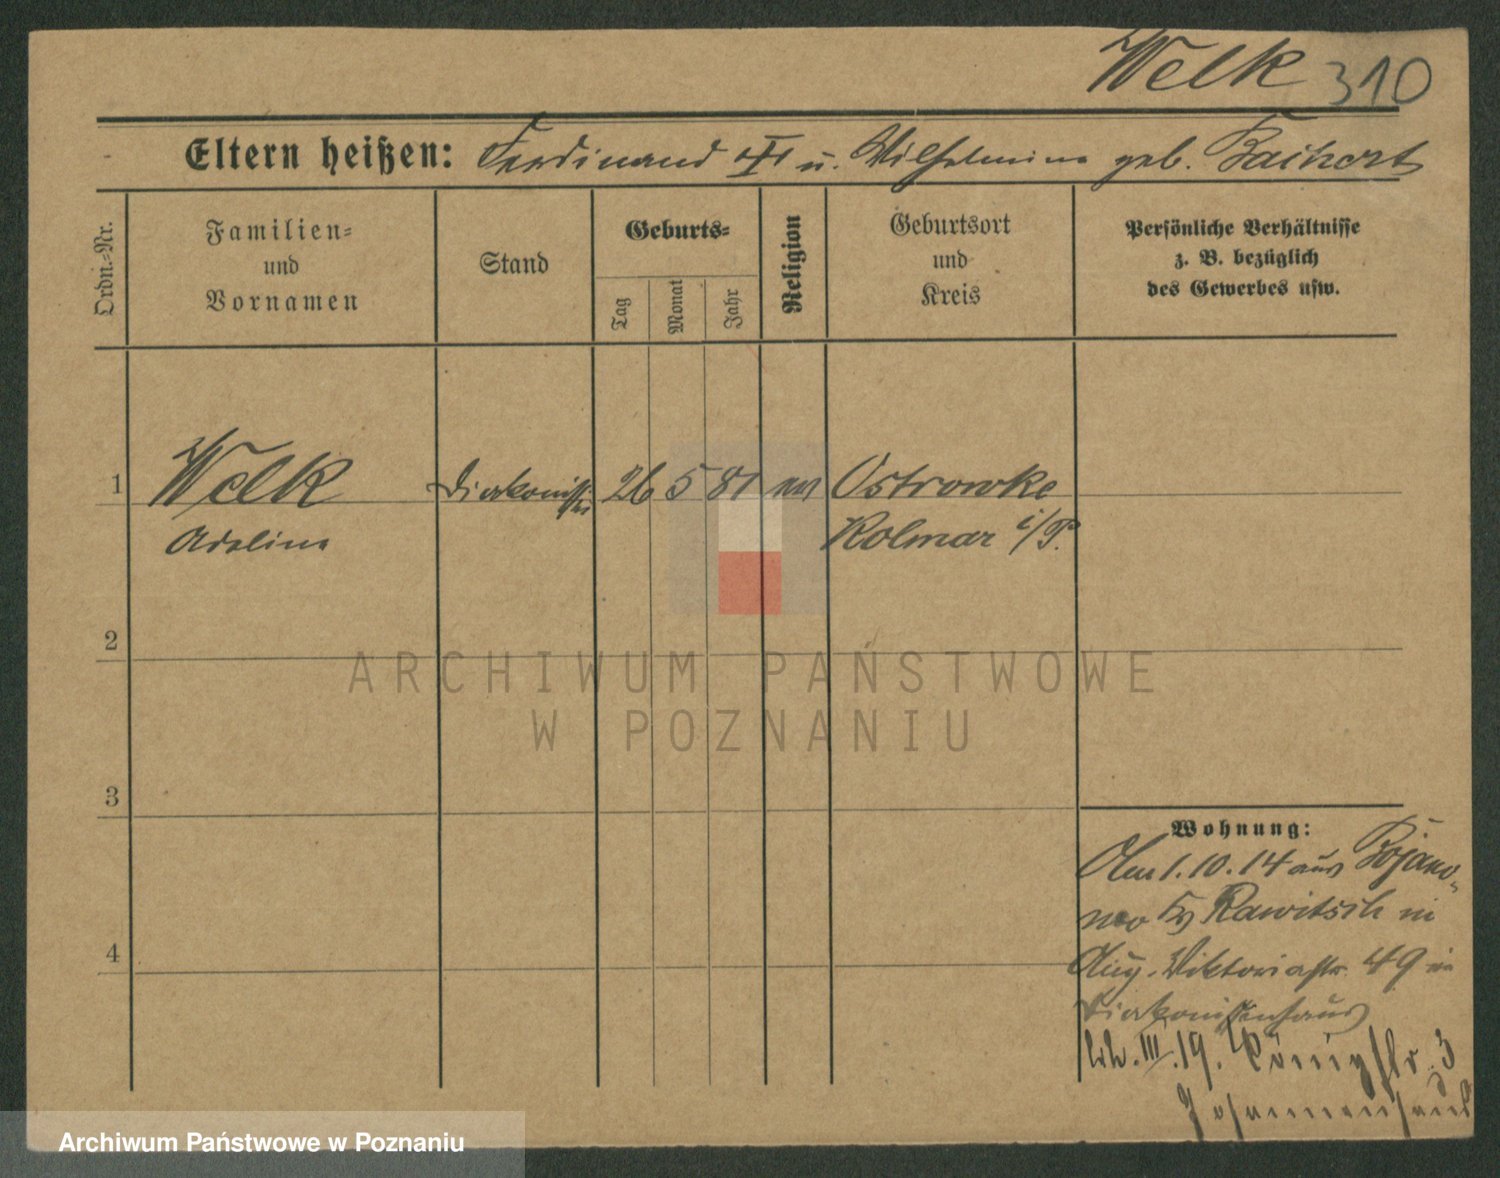 Welk 310
Eltern heißen: Ferdinand u. Wilhelmine geb.
Ordn.-Nr.
Familien-
und
Vornamen
Stand
Geburts-
Tag
Monat
Jahr
Religion
Geburtsort
und
Kreis
Persönliche Verhältnisse
z. B. bezüglich
des Gewerbes usw.
1 Welk Diakonisse 26 5 81 Ostrowke
Adeline Kolmar i/P.
2
3
4
Wohnung:
Am 1.10.14 aus Bojano-
wo Rawitsch in
Aug. Viktoriastr. 49 in
Diakonissenhaus
III.19. Königstr. 3
ARCHIWUM PAŃSTWOWE
W POZNANIU
Archiwum Państwowe w Poznaniu